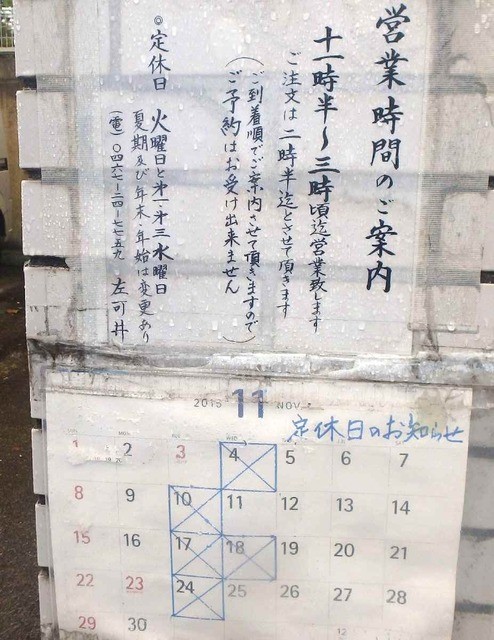 営業時間のご案内
十一時半～三時頃迄営業致します
ご注文は二時半迄とさせて頂きます
(ご到着順でご案内させて頂きますので)
(ご予約はお受け出来ません)
◎定休日 火曜日と第一・第三水曜日
夏期及び年末・年始は変更あり
(電)〇四六七-二四-七七五九 左可井
2015 11 NOV.
定休日のお知らせ
1 2 3 4 5 6 7
8 9 10 11 12 13 14
15 16 17 18 19 20 21
22 23 24 25 26 27 28
29 30
12